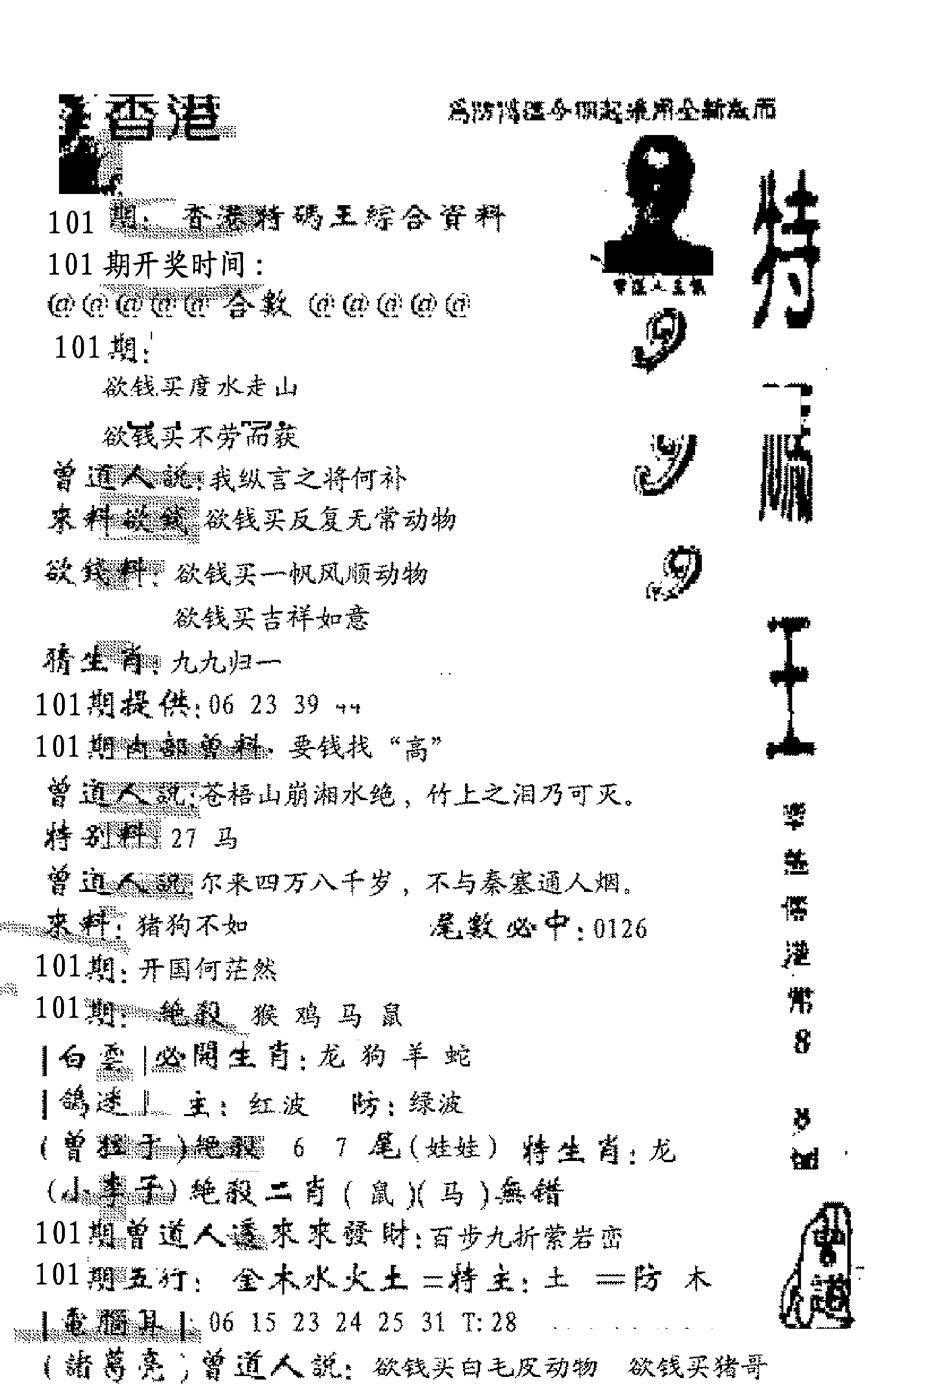 香港
為防搞亂今期起採用全新版面
101期：香港特碼王綜合資料
101期开奖时间:
@@@@@合數@@@@@
101期:
欲钱买度水走山
欲钱买不劳而获
曾道人説:我纵言之将何补
來料欲錢 欲钱买反复无常动物
欲錢料: 欲钱买一帆风顺动物
欲钱买吉祥如意
猜生肖:九九归一
101期提供:06 23 39 44
101期内部曾料: 要钱找“高”
曾道人説:苍梧山崩湘水绝，竹上之泪乃可灭。
特别料:27 马
曾道人説 尔来四万八千岁，不与秦塞通人烟。
來料:猪狗不如 尾數必中:0126
101期:开国何茫然
101期: 絶殺 猴 鸡 马 鼠
|白雲|必開生肖:龙 狗 羊 蛇
|鴿迷| 主:红波 防:绿波
(曾 于)絶殺 6 7 尾(娃娃) 特生肖:龙
(小李子)絶殺二肖(鼠)(马)無錯
101期曾道人透來來發財:百步九折萦岩峦
101期五行: 金木水火土=特主:土 =防 木
|電腦耳|:06 15 23 24 25 31 T:28
(諸葛亮)曾道人説: 欲钱买白毛皮动物 欲钱买猪哥
特
碼
王
9
9
9
港
幣
8
8
曾道人